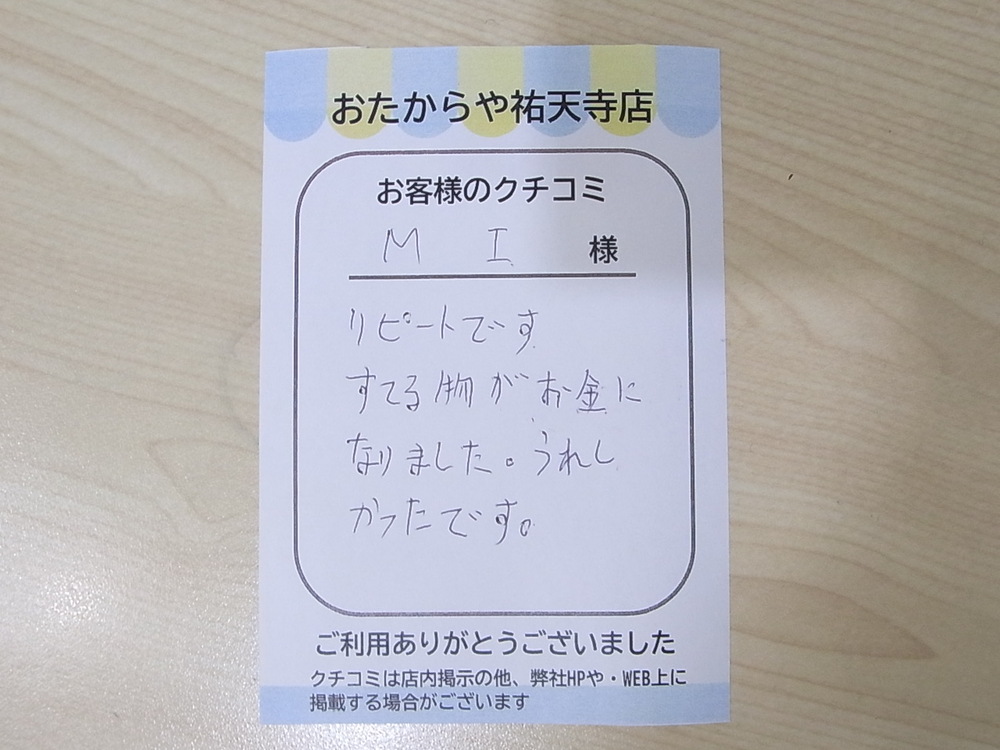 おたからや祐天寺店
お客様のクチコミ
M I 様
リピートです
すてる物がお金に
なりました。うれし
かったです。
ご利用ありがとうございました
クチコミは店内掲示の他、弊社HPや・WEB上に
掲載する場合がございます